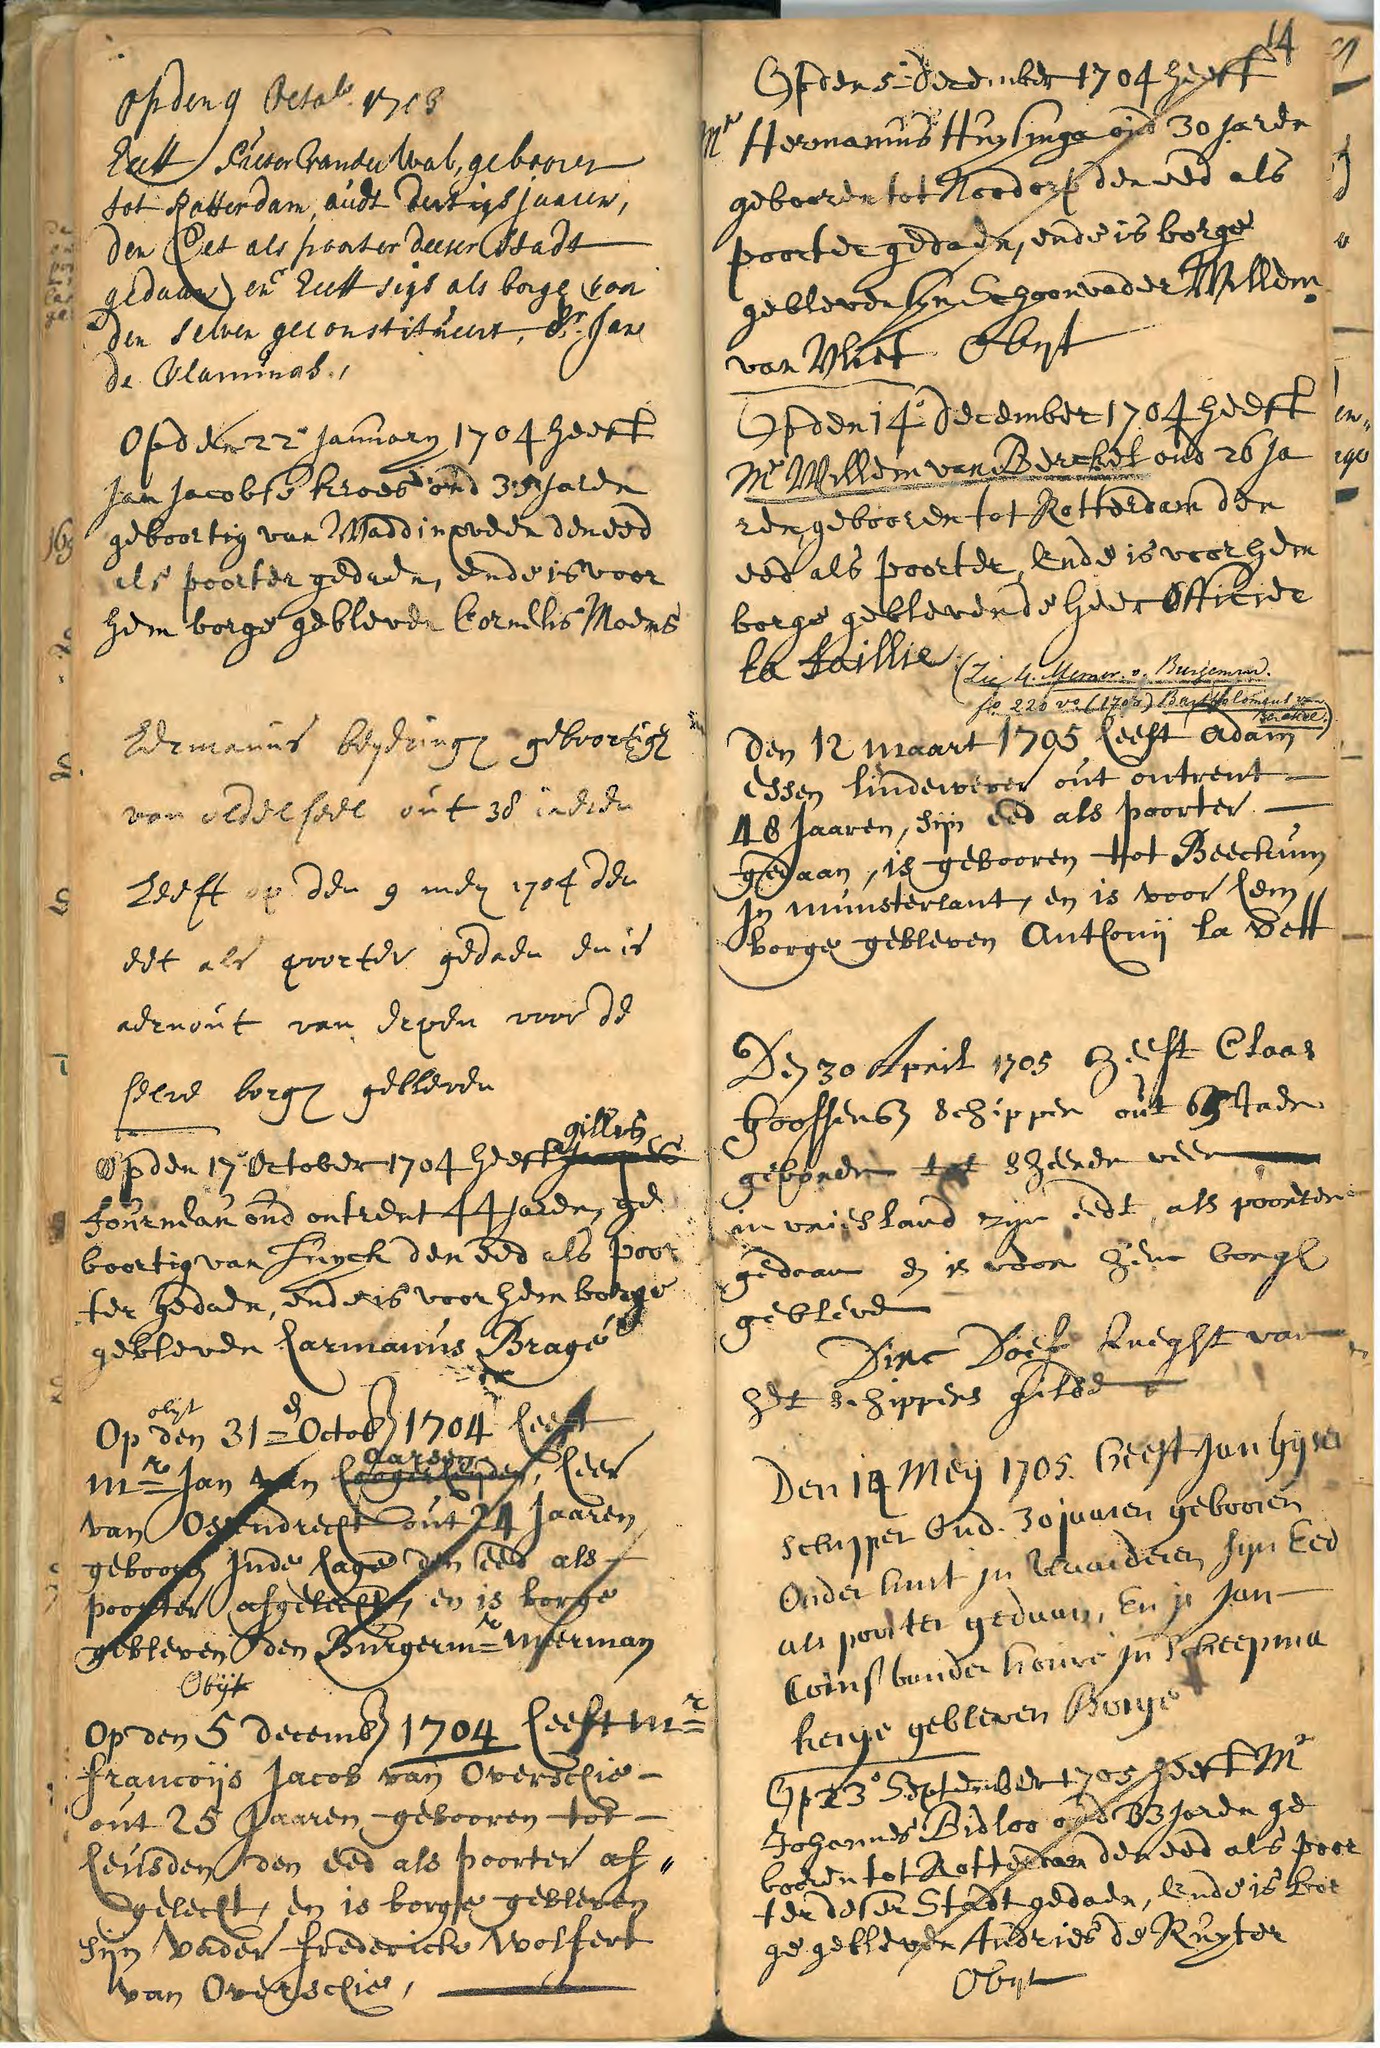 Op den 9 Octob. 1703
heeft Pieter vander Wal, gebooren
tot Rotterdam, oudt dertigh jaaren,
den Eet als poorter deeser Stadt
gedaan, en heeft sigh als borge voor
den selven geconstitueert, Sr. Jan
de Vlamingh.,
Op den 22e January 1704 heeft
Jan Jacobse Kroes oud 30 jaren
geboortig van Waddinxveen den eed
als poorter gedaen, ende is voor
hem borge gebleven Cornelis Moens
Hermanus geboortigh
van oldelseel out 38 iaeren
heeft op den 9 mey 1704 den
eet als poorter gedaen en is
aernout van erpen voor de
selve borg gebleven
gillis
Op den 17e October 1704 heeft
fourneau oud ontrent 44 Jaren, ge
boortig van Luyck den eed als poor
ter gedaen, ende is voor hem borge
gebleven harmanus Bragé
obijt
Op den 31=e Octob 1704 heeft
aarsen
Mr= Jan van , heer
van Ossendrecht out 24 Jaaren
geboorn Inde hage den eed als
poorter afgeleeft, en is borge
gebleven den Burgermr= Meerman
Obijt
Op den 5 decemb 1704 heeft Mr=
francoijs Jacob van Overschie -
out 25 Jaaren gebooren tot -
heusden den eed als poorter af„
geleeft, en is borge gebleven
sijn vader frederick wolfert
van Overschie,
14
Op den 5e December 1704 heeft
Mr Hermanus Huysinga oud 30 jaren
geboren tot Noodorp den eed als
poorter gedaen, ende is borge
gebleven syn Schoonvader Willem
van Vliet Obyt
Op den 14e December 1704 heeft
Mr Willem van Berckel oud 26 Ja
ren, geboren tot Rotterdam den
eed als poorter, Ende is voor hem
borge gebleven de heer Officier
la Faillie
(Zie 4. Memor. v. Burgemrn.
fo 220 vo (1703) Bartholomeus van
Berckel.)
Den 12 maart 1705 heeft Adam
Essen lindewever out ontrent -
48 Jaaren, sijn eed als poorter -
gedaan, is gebooren tot Beeckum
In munsterlant, en is voor hem
borge gebleven Anthonij la
Den 30 April 1705 heeft Claas
schipper out 65 Jaer
geboren tot sheeren veen
in vriesland zijn eedt als poorter
gedaan en is voor hem borge
gebleve
Dirc Doef knegt van
het schippers gilde
Den 14 Meij 1705. heeft Jan
schipper Oud. 30 jaaren gebooren
Onder in sijn Eed
als poorter gedaan, En is Jan -
vander in
gebleven Borge
Op 23e September 1705 heeft Mr
Johannes Bidloo oud 33 jaren ge
boren tot Rotterdam den eed als poor
ter deser Stadt gedaen, Ende is bor
ge gebleven Andries de Ruyter
Obyt